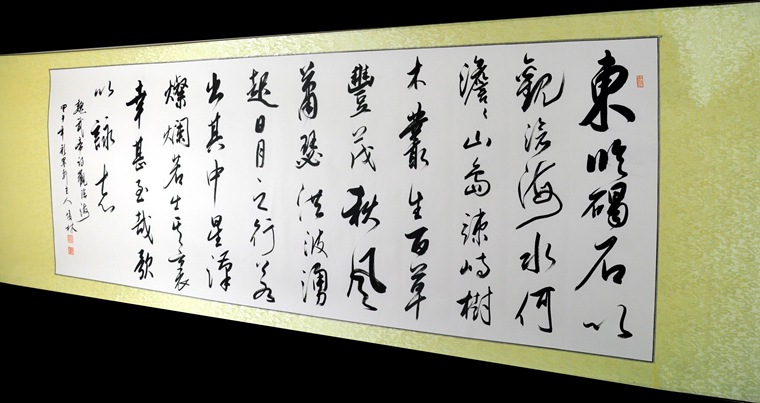 東臨碣石以
觀滄海水何
澹澹山島竦峙樹
木叢生百草
豐茂秋風
蕭瑟洪波湧
起日月之行若
出其中星漢
燦爛若出其裏
幸甚至哉歌
以詠志
魏武帝詩觀滄海
甲午年 主人